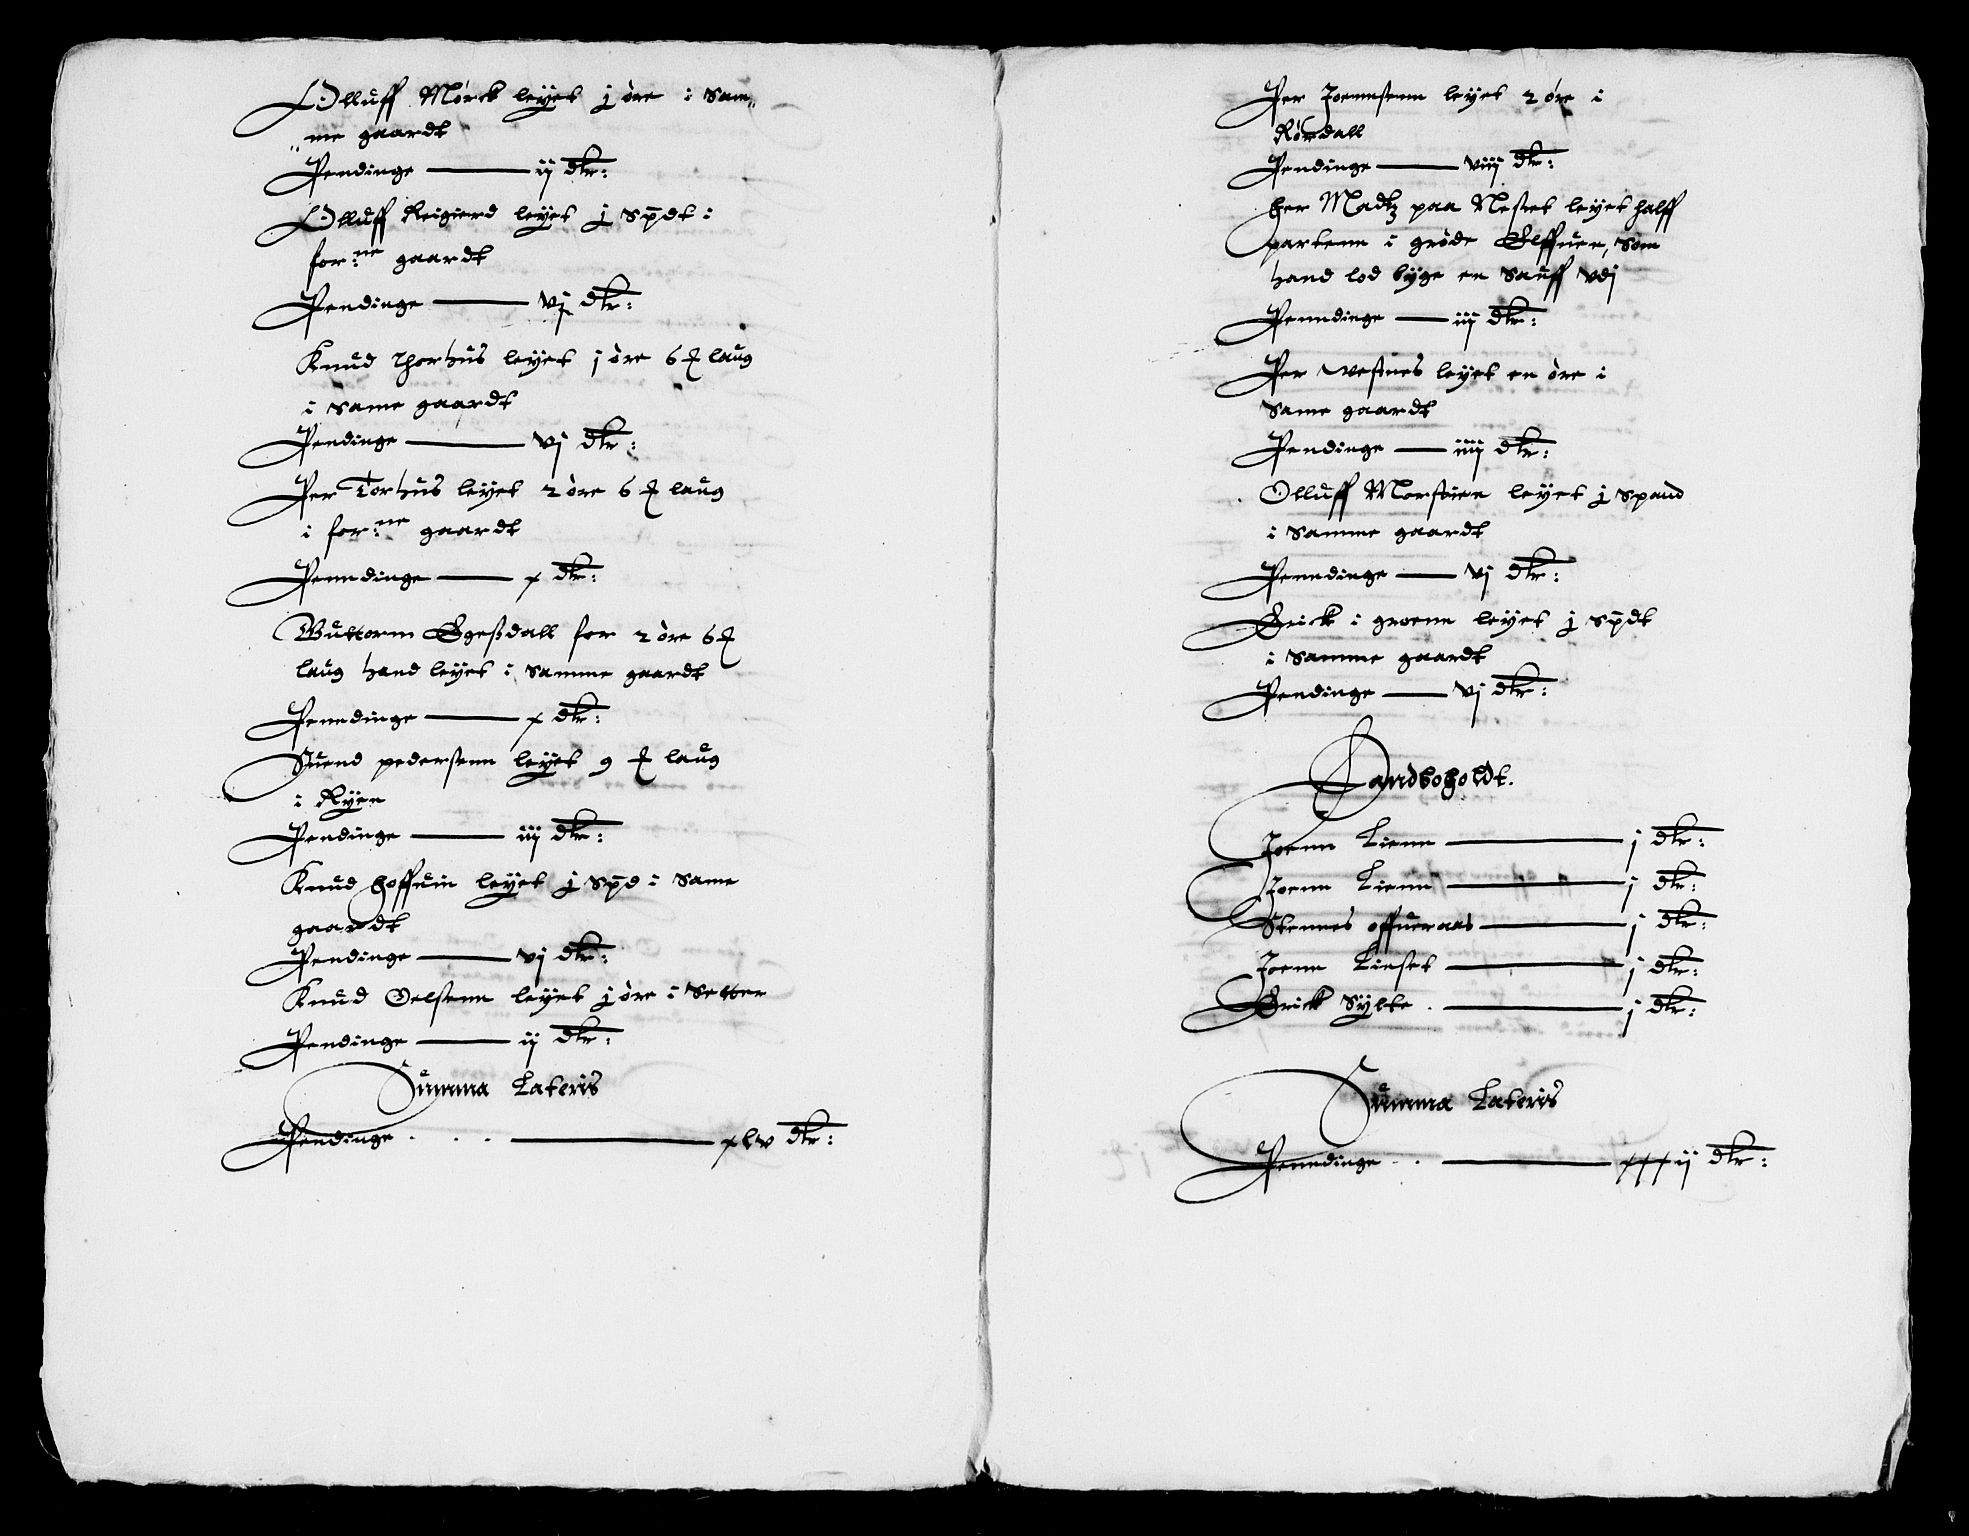 Olluff Mørck leyet j øre i Sam„
„me gaardt
Pendinge ij dlr:
Olluff Reigierd leyet j Spdt i
for:ne gaardt
Pendinge vj dlr:
Knud Thorhus leyet j øre 6 laug
i Same gaardt
Pendinge vj dlr:
Per Torhus leyet 2 øre 6 laug
i for:ne gaardt
Penndinge x dlr:
Guttorm Egeßdall for 2 øre 6
laug hand leyet i Samme gaardt
Penndinge x dlr:
Suend pedersenn leyet 9 laug
i Ryen
Pendinge iij dlr:
Knud hoffuin leyet j Spd i Same
gaardt
Pendinge vj dlr:
Knud Oelsenn leyet j øre i Setter
Pendinge ij dlr:
Summa Lateris
Pendinge . . . xlv dlr:
Per Joennsenn leyet 2 øre i
Rørdall
Pendinge viij dlr:
her Madtz paa Nesset leyet halff
partenn i grøde Elffuen, Som
hand lod byge en Sauff vdj
Penndinge iij dlr:
Per Vestnes leyet en øre i
Same gaardt
Pendinge iiij dlr:
Olluff Morstien leyet j Spand
i Samme gaardt
Penndinge vj dlr:
Erick i groenn leyet j Spdt
i Samme gaardt
Pendinge vj dlr:
Sandboholdt.
Joenn Lienn j dlr:
Joenn Lienn j dlr:
Stennes offueraas j dlr:
Joenn Linset j dlr:
Erick Sylte . j dlr:
Summa Lateris
Penndinge . . xxxij dlr: